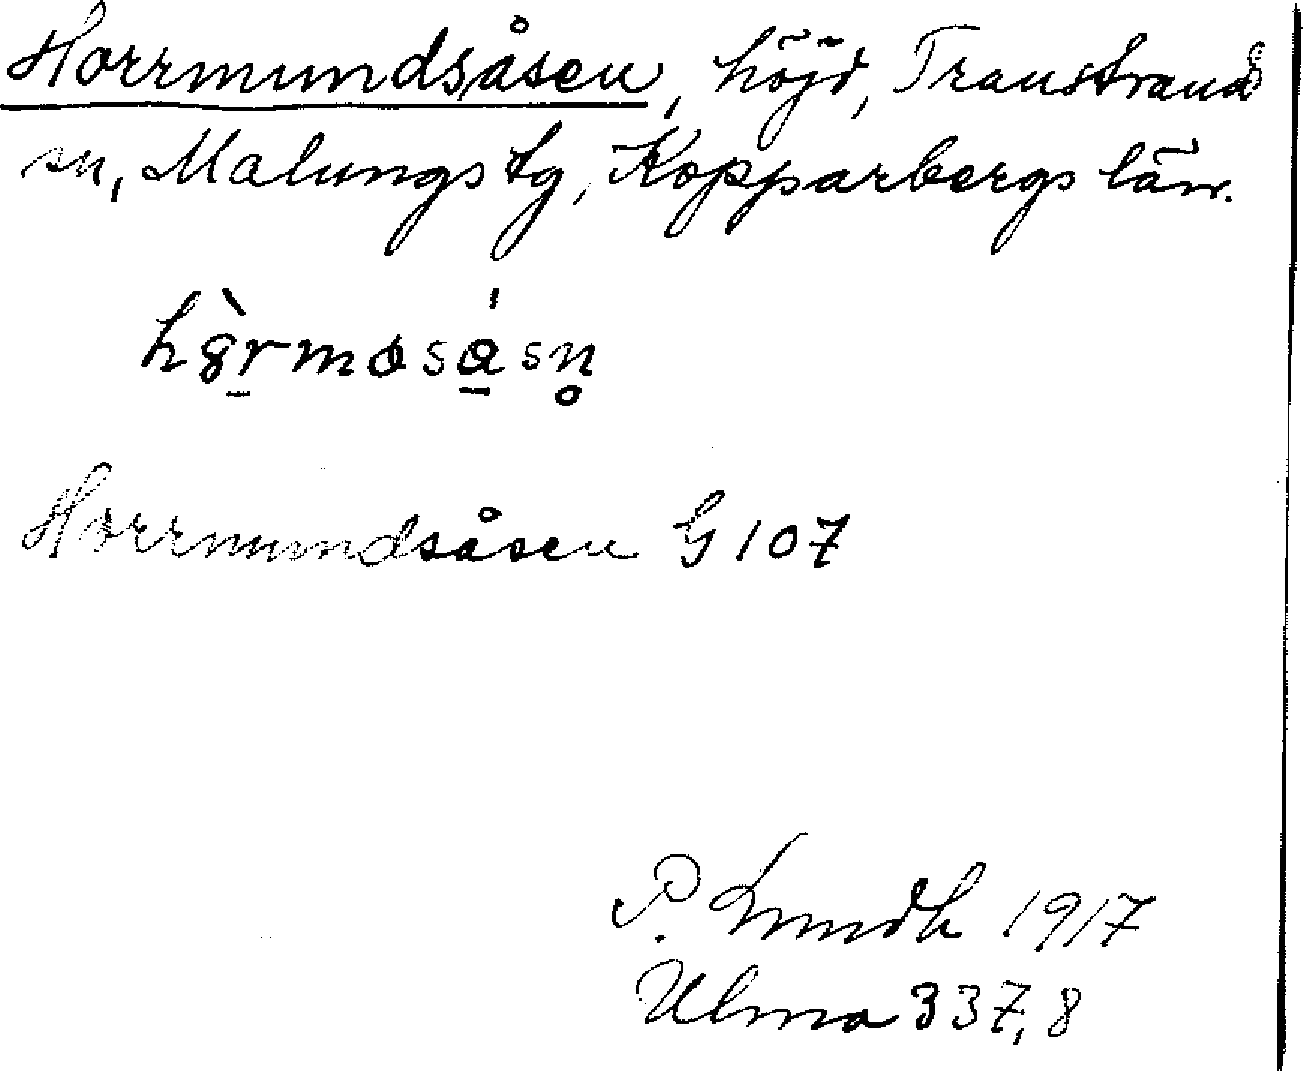 Horrmundsåsen, höjd, Transtrands
sn, Malungs tg, Kopparbergs län.
Horrmundsåsen G 107
P. Lundh 1917
Ulma 337,8